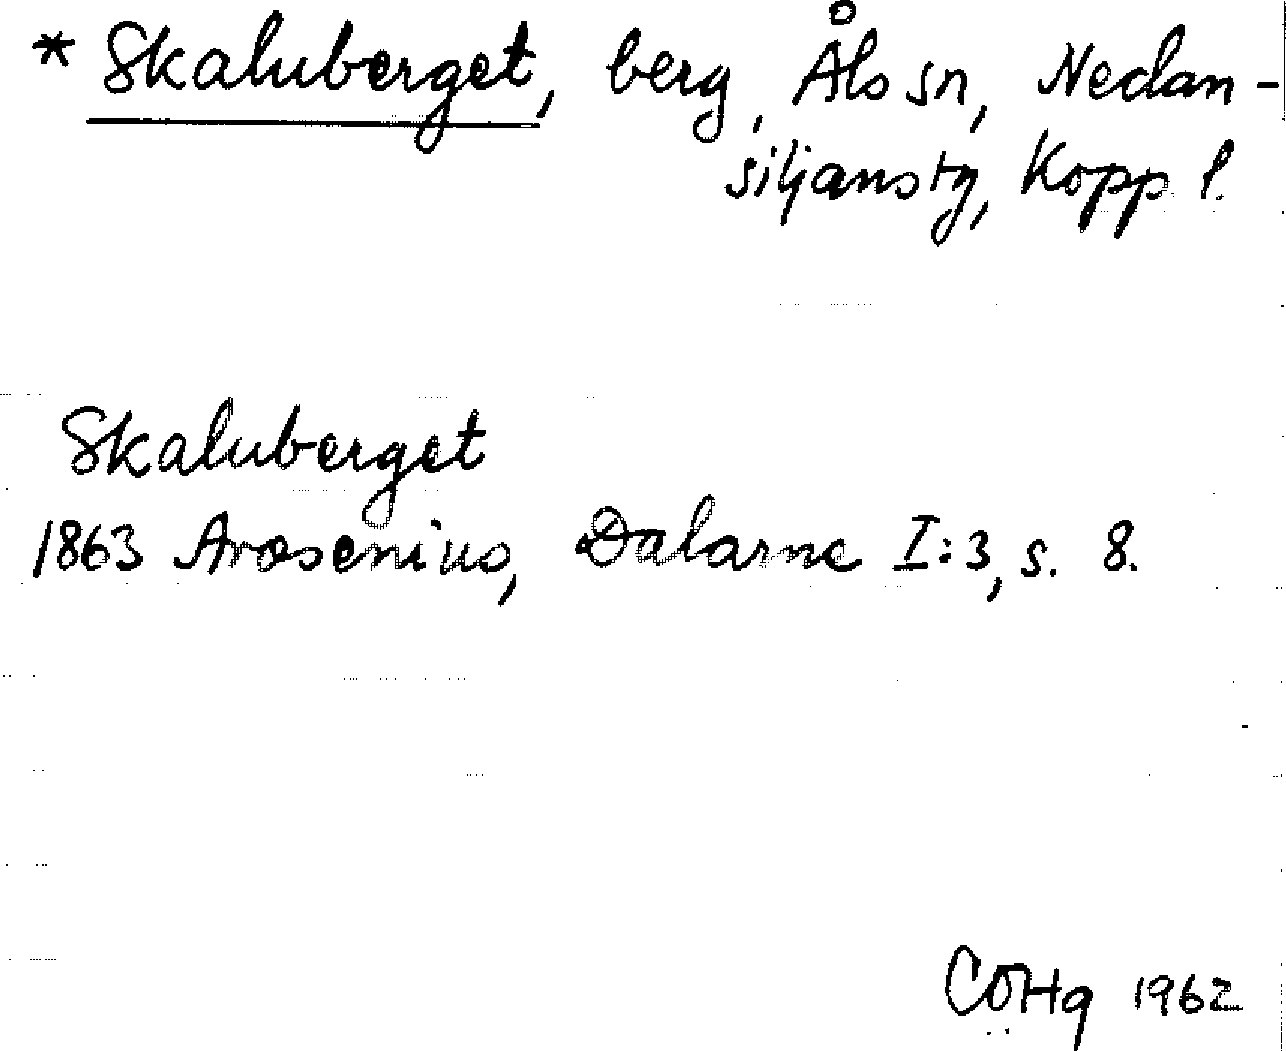 * Skaluberget, berg, Åls sn, Nedan-
siljanstg, Kopp l.
Skaluberget
1863 Arosenius, Dalarne I:3, s. 8.
CÖHg 1962